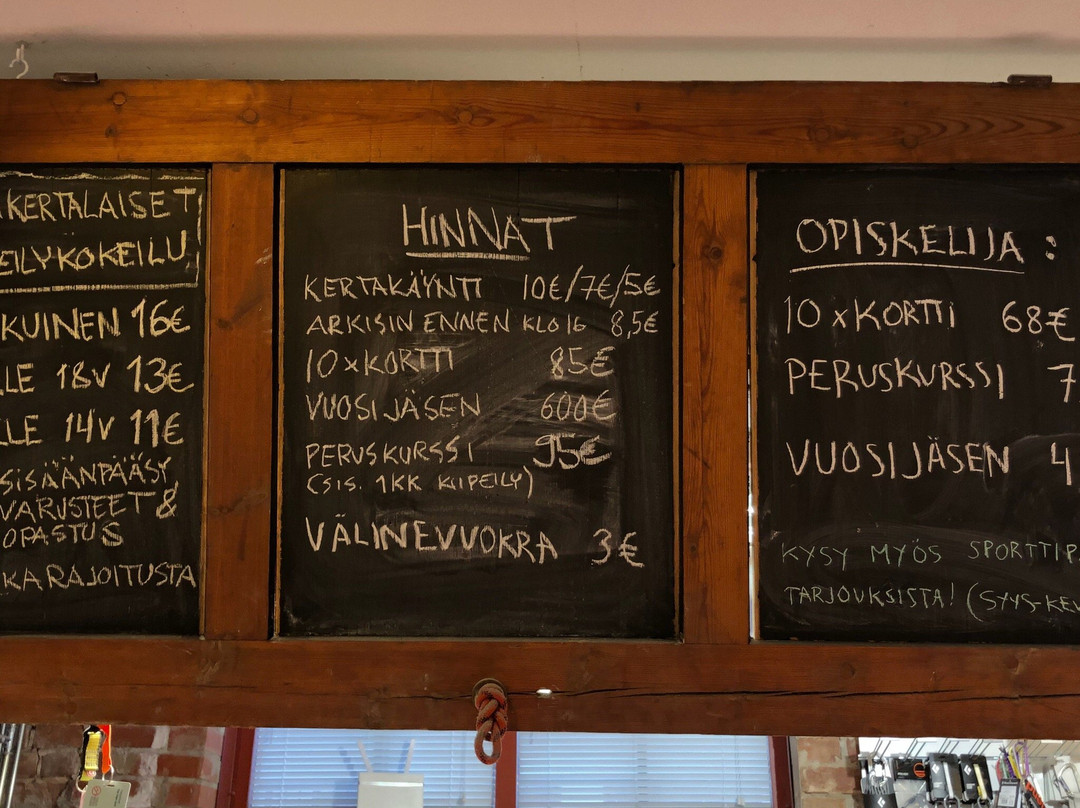 KERTALAISET
EILYKOKEILU
KUINEN 16€
LLE 18V 13€
LLE 14V 11€
SISÄÄNPÄÄSY,
VARUSTEET &
OPASTUS
KARAJOITUSTA
HINNAT
KERTAKÄYNTI 10€/7€/5€
ARKISIN ENNEN KLO 16 8,5€
10 x KORTTI 85€
VUOSIJÄSEN 600€
PERUSKURSSI 95€
(SIS. 1KK KIIPEILY)
VÄLINEVUOKRA 3€
OPISKELIJA :
10 x KORTTI 68€
PERUSKURSSI 7
VUOSIJÄSEN 4
KYSY MYÖS SPORTTIP
TARJOUKSISTA! (SYYS-KEV